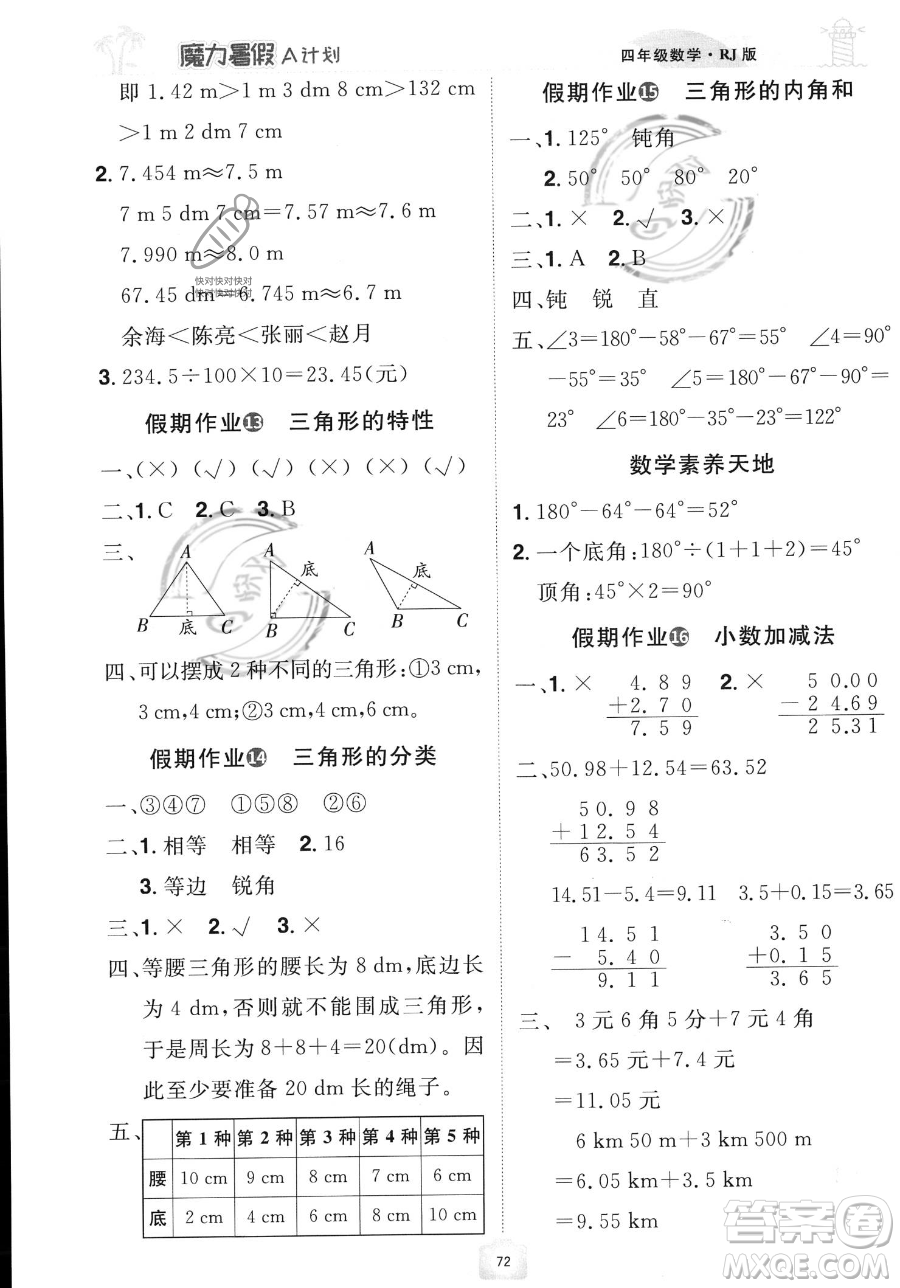 魔力暑假A计划
四年级数学·RJ版
即1.42 m＞1 m 3 dm 8 cm＞132 cm
＞1 m 2 dm 7 cm
2. 7.454 m≈7.5 m
7 m 5 dm 7 cm=7.57 m≈7.6 m
7.990 m≈8.0 m
67.45 dm=6.745 m≈6.7 m
余海＜陈亮＜张丽＜赵月
3. 234.5÷100×10=23.45(元)
假期作业13 三角形的特性
一、(×) (√) (×) (×) (√)
二、1. C 2. C 3. B
三、
A 底 A A 底
B 底 C B C B C
四、可以摆成2种不同的三角形:①3 cm,
3 cm,4 cm;②3 cm,4 cm,6 cm。
假期作业14 三角形的分类
一、③④⑦ ①⑤⑧ ②⑥
二、1. 相等 相等 2. 16
3. 等边 锐角
三、1. × 2. √ 3. ×
四、等腰三角形的腰长为8 dm,底边长
为4 dm,否则就不能围成三角形,
于是周长为8+8+4=20(dm)。因
此至少要准备20 dm长的绳子。
五、
第1种 第2种 第3种 第4种 第5种
腰 10 cm 9 cm 8 cm 7 cm 6 cm
底 2 cm 4 cm 6 cm 8 cm 10 cm
假期作业15 三角形的内角和
一、1. 125° 钝角
2. 50° 50° 80° 20°
二、1. × 2. √ 3. ×
三、1. A 2. B
四、钝 锐 直
五、∠3=180°−58°−67°=55° ∠4=90°
−55°=35° ∠5=180°−90°−67°=
23° ∠6=180°−35°−23°=122°
数学素养天地
1. 180°−64°−64°=52°
2. 一个底角:180°÷(1+1+2)=45°
顶角:45°×2=90°
假期作业16 小数加减法
一、1. × 4.89 2. × 50.00
+2.70 −24.69
7.59 25.31
二、50.98+12.54=63.52
50.98
+12.54
63.52
14.51−5.4=9.11 3.5+0.15=3.65
14.51 3.50
−5.40 +0.15
9.11 3.65
三、3元6角5分+7元4角
=3.65元+7.4元
=11.05元
6 km 50 m+3 km 500 m
=6.05 km+3.5 km
=9.55 km
72
快对快对快对
快对快对快对
答案圈